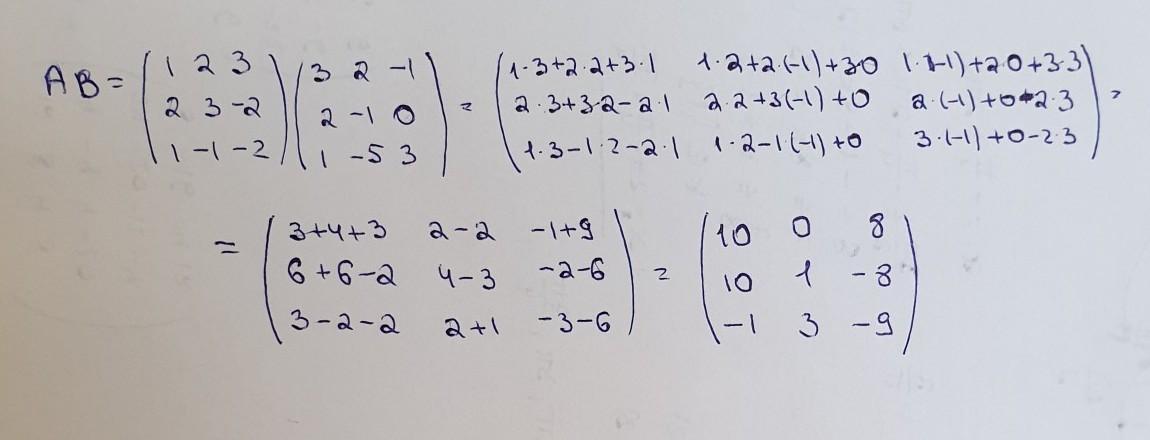 AB = (1 2 3 / 2 3 -2 / 1 -1 -2) (3 2 -1 / 2 -1 0 / 1 -5 3) = (1·3+2·2+3·1 1·2+2·(-1)+3·0 1·(-1)+2·0+3·3 / 2·3+3·2-2·1 2·2+3(-1)+0 2·(-1)+0-2·3 / 1·3-1·2-2·1 1·2-1·(-1)+0 3·(-1)+0-2·3) =
= (3+4+3 2-2 -1+9 / 6+6-2 4-3 -2-6 / 3-2-2 2+1 -3-6) = (10 0 8 / 10 1 -8 / -1 3 -9)